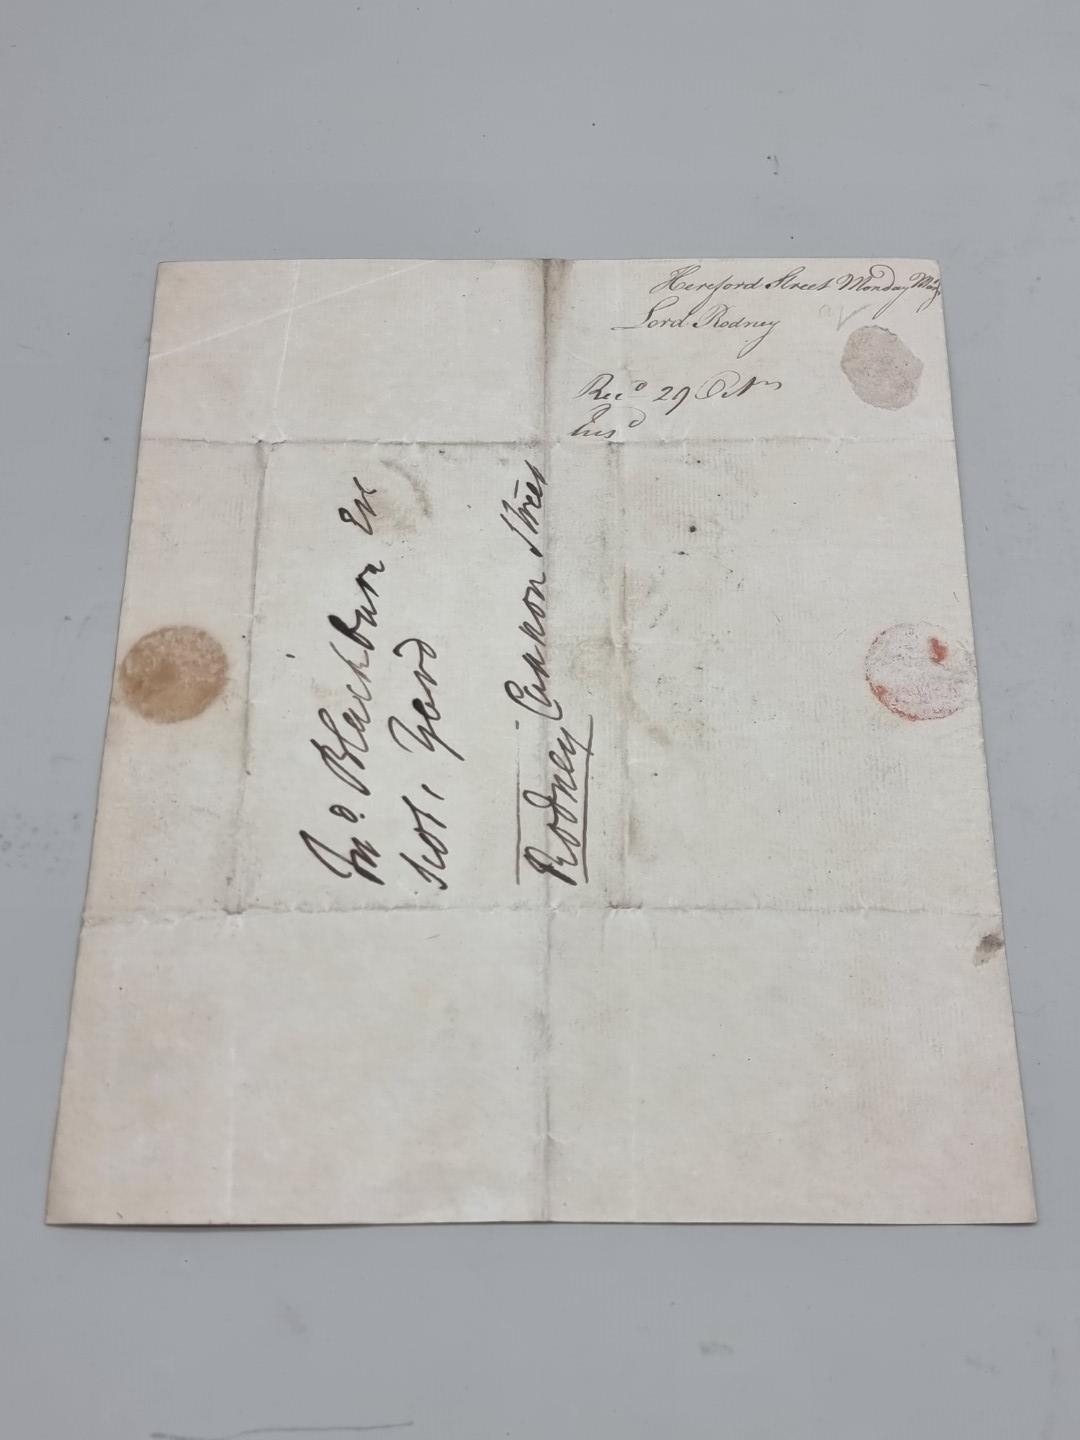 Hereford Street Monday May
Lord Rodney
Rec'd 29 Octr
Ansd
Jno. Blackburn Esr
Scot, Yard
Cannon Street
Rodney